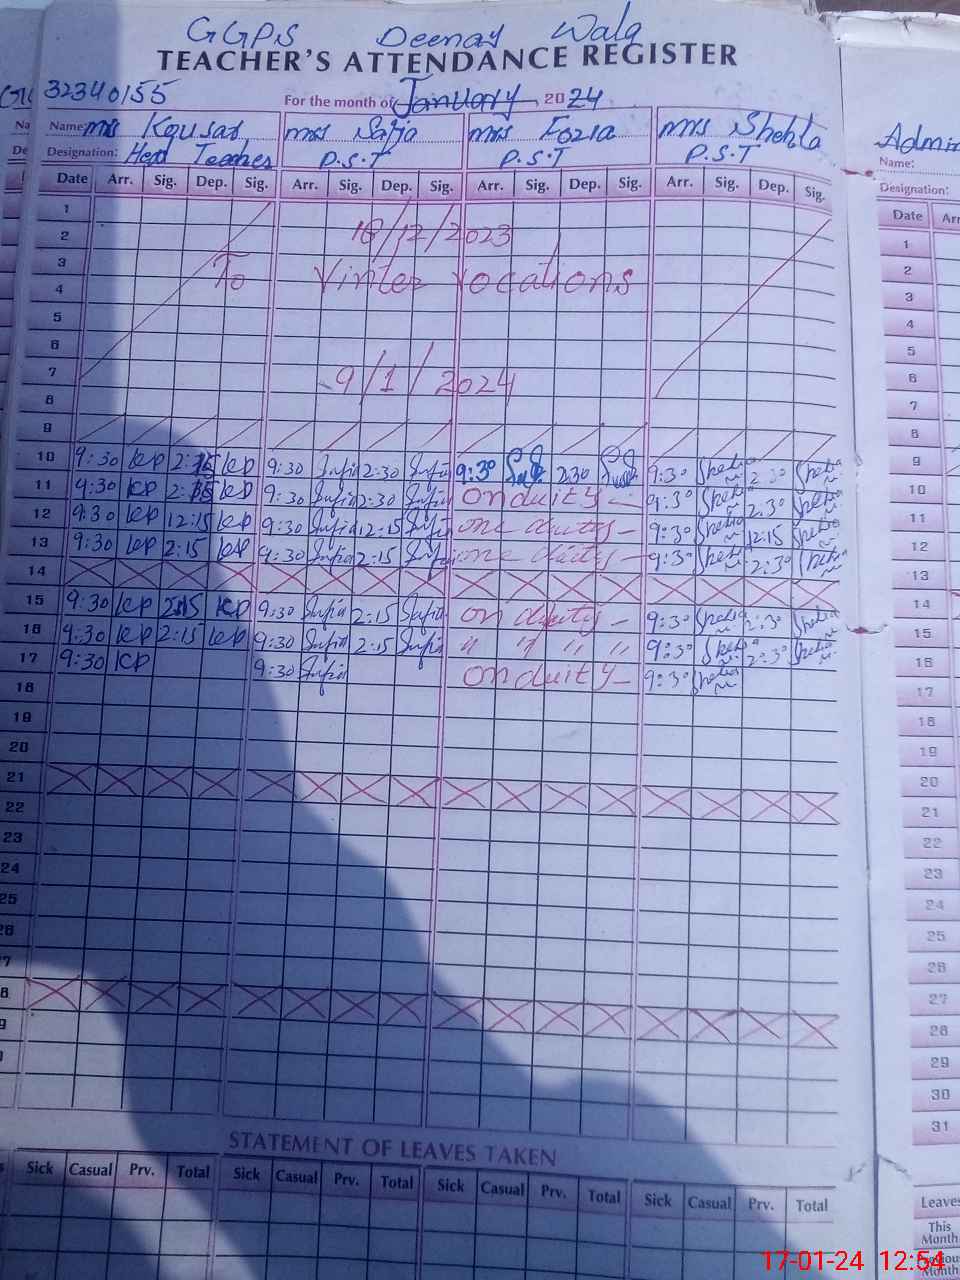 GGPS Deenay Wala
TEACHER'S ATTENDANCE REGISTER
32340155
For the month of January 2024
Name: Mrs Kousar Mrs Safia Mrs Fozia Mrs Shehla
Designation: Head Teacher P.S.T P.S.T P.S.T
Date Arr. Sig. Dep. Sig. Arr. Sig. Dep. Sig. Arr. Sig. Dep. Sig. Arr. Sig. Dep. Sig.
1
2 18/12/2023
3 To Vinter vocations
4
5
6
7 9/1/2024
8
9
10 9:30 KP 2:15 KP 9:30 Safia 2:30 Safia 9:30 2:30 9:30 Shehla 2:30 Shehla
11 9:30 KP 2:15 KP 9:30 Safia 2:30 Safia on duity 9:30 Shehla 2:30 Shehla
12 9:30 KP 12:15 KP 9:30 Safia 12:15 Safia one duity 9:30 Shehla 12:15 Shehla
13 9:30 KP 2:15 KP 9:30 Safia 2:15 Safia one duity 9:30 Shehla 2:30 Shehla
14
15 9:30 KP 2:15 KP 9:30 Safia 2:15 Safia on duity 9:30 Shehla 2:30 Shehla
16 9:30 KP 2:15 KP 9:30 Safia 2:15 Safia " " " " 9:30 Shehla 2:30 Shehla
17 9:30 KP 9:30 Safia on duity 9:30 Shehla
18
19
20
21
22
23
24
25
STATEMENT OF LEAVES TAKEN
Sick Casual Prv. Total Sick Casual Prv. Total Sick Casual Prv. Total Sick Casual Prv. Total
Name:
Designation:
Date
1
2
3
4
5
6
7
8
9
10
11
12
13
14
15
16
17
18
19
20
21
22
23
24
25
26
27
28
29
30
31
Leaves
This
Month
Month
17-01-24 12:54